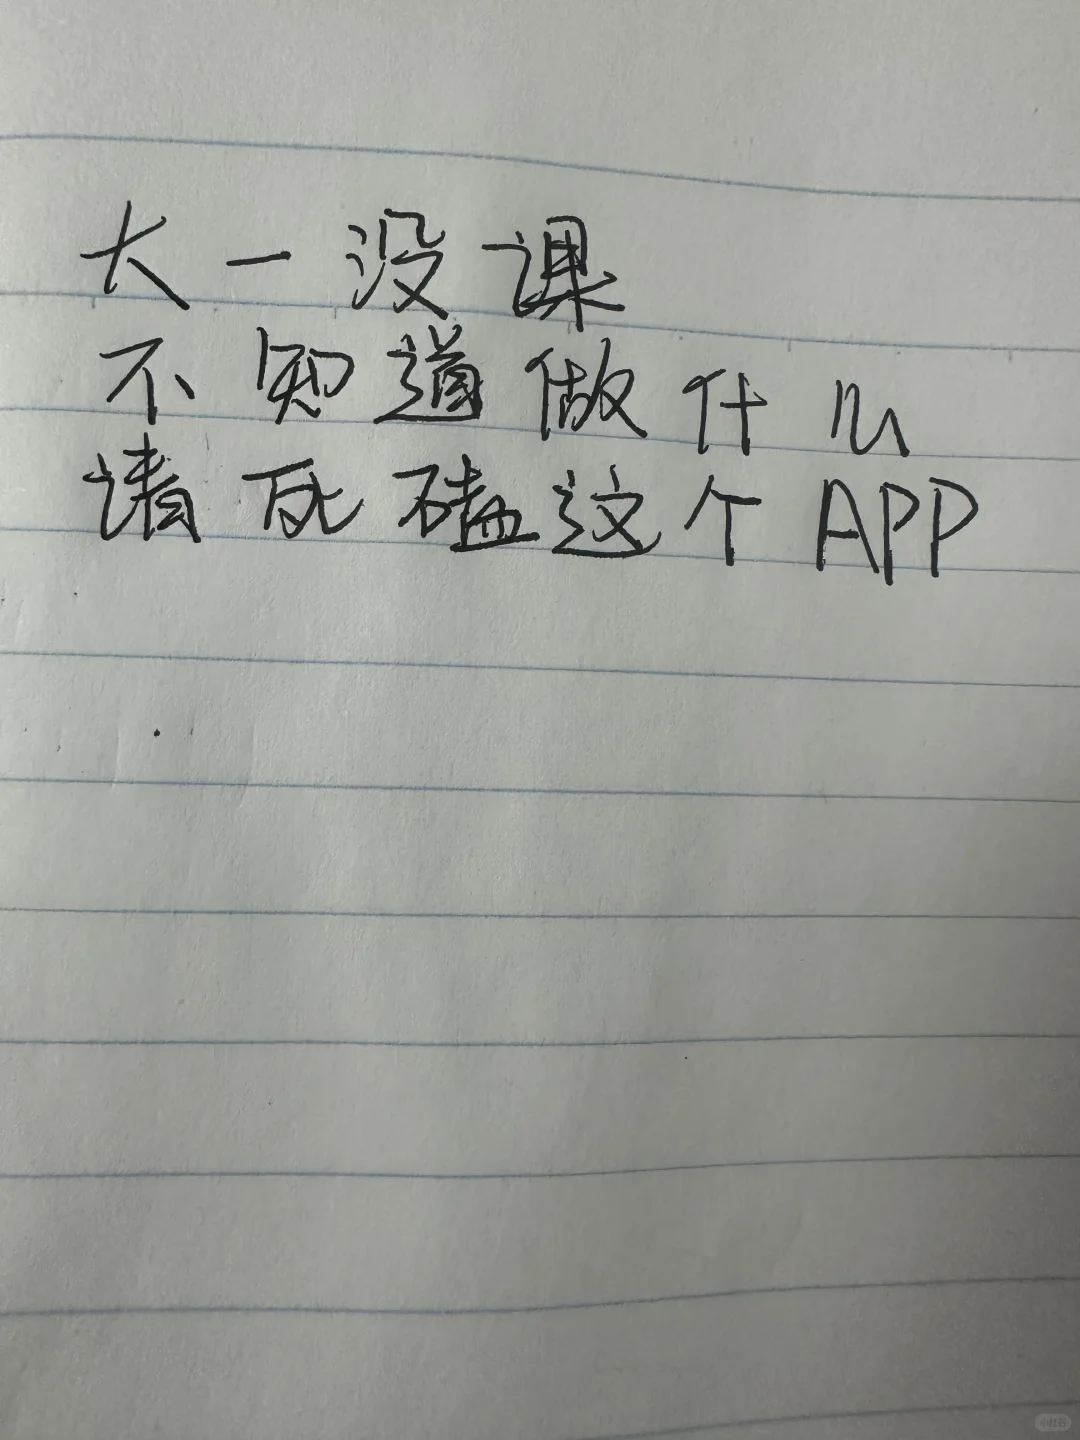 大一没课
不知道做什么
请死磕这个APP
小红书